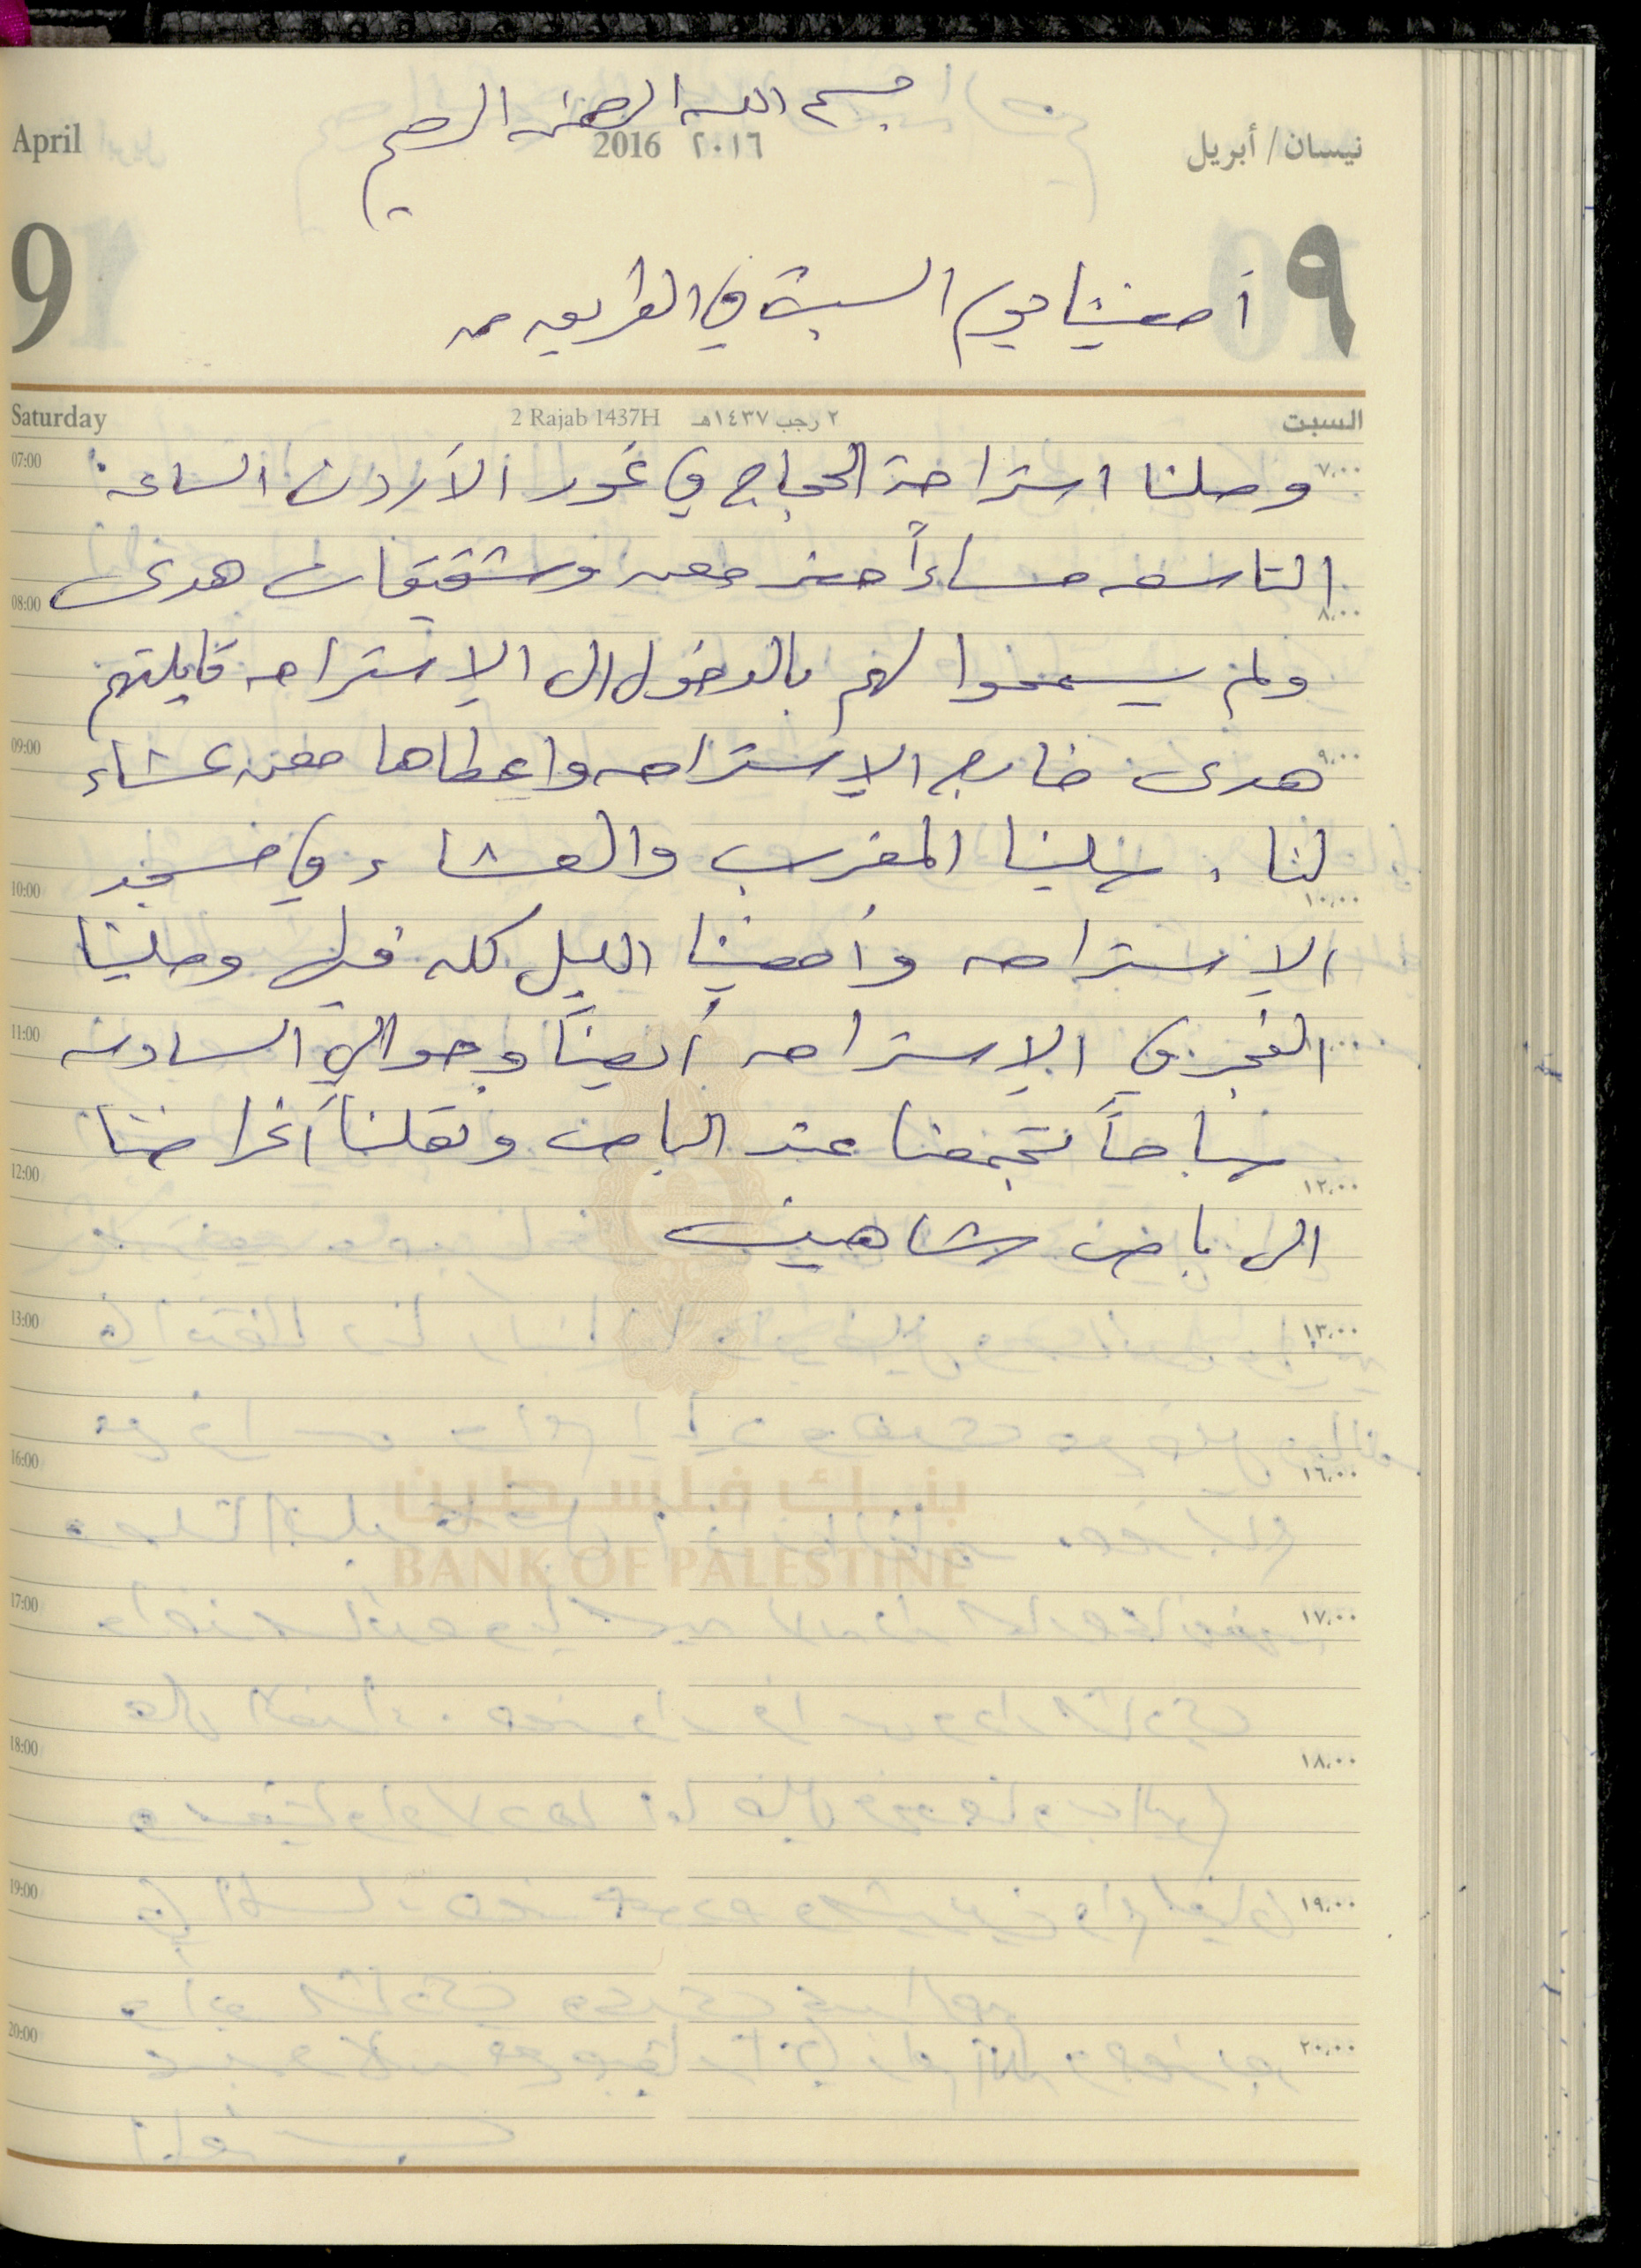 بسم الله الرحمن الرحيم
April 2016 ٢٠١٦ نيسان / أبريل
9 ٩
أمضينا يوم السبت في الطريق
Saturday 2 Rajab 1437H ٢ رجب ١٤٣٧هـ السبت
07:00 ٧,٠٠
وصلنا استراحة الحجاج في غور الأردن الساعة
التاسعه مساءاً حضر معن وشقيقات هدى
08:00 ٨,٠٠
ولم يسمحوا لهم بالدخول الى الإستراحه قابلتهم
09:00 ٩,٠٠
هدى خارج الإستراحه واعطاها معن عشاء
لنا . صلينا المغرب والعشاء في مسجد
10:00 ١٠,٠٠
الإستراحه وأمضينا الليل كله فيها وصلينا
11:00
الفجر في الإستراحه أيضاً وحوالي السادسه
صباحاً تجمعنا عند الباص ونقلنا أغراضنا
12:00 ١٢,٠٠
الى باص شاهين
13:00 ١٣,٠٠
16:00 ١٦,٠٠
بنك فلسطين
BANK OF PALESTINE
17:00 ١٧,٠٠
18:00 ١٨,٠٠
19:00 ١٩,٠٠
20:00 ٢٠,٠٠